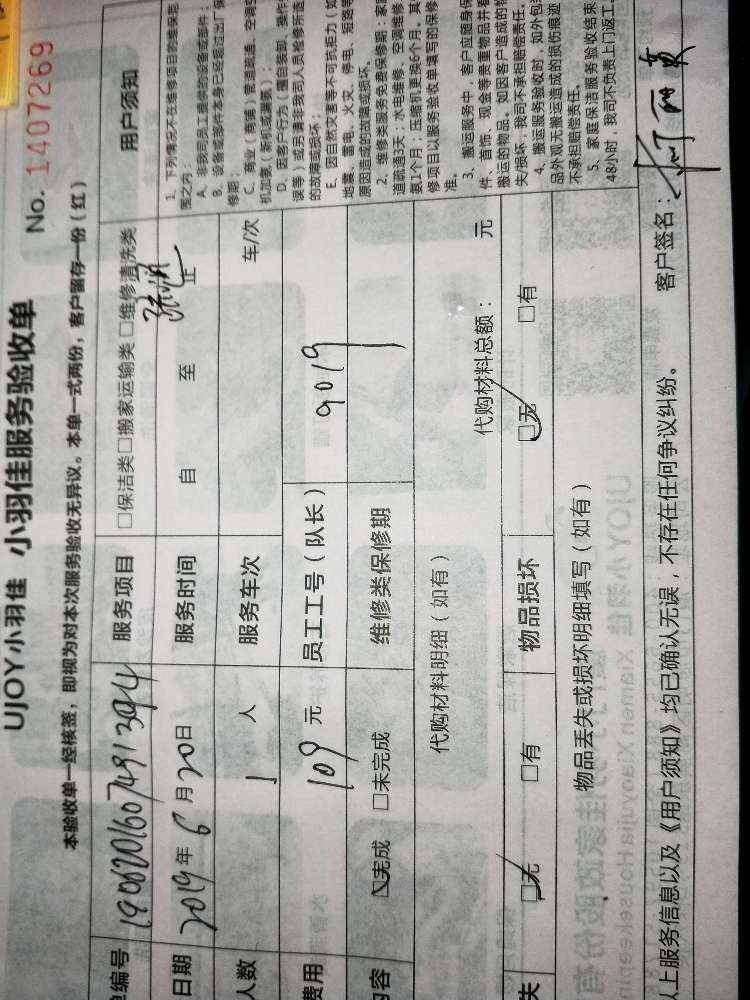 UJOY小羽佳 小羽佳服务验收单
No. 1407269
本验收单一经核签，即视为对本次服务验收无异议。本单一式两份，客户留存一份（红）
编号 19062016074913 服务项目 □保洁类□搬家运输类 □维修清洗类 用户须知
日期 2019年6月20日 服务时间 自 至 止
人数 1 人 服务车次 车/次
费用 109 元 员工工号（队长） 9019
内容 ☑完成 □未完成 维修类保修期
代购材料明细（如有） 代购材料总额： 元
失 ☑无 □有 物品损坏 ☑无 □有
物品丢失或损坏明细填写（如有）
上服务信息以及《用户须知》均已确认无误，不存在任何争议纠纷。 客户签名：
1、下列情况不在维修项目的维保范
围之内：
A、非我司员工提供的设备或部件；
B、设备或部件本身已经超过出厂保
修期；
C、商业（商铺）管道疏通、空调安
机加氨（新机或漏氨）；
D、因客户行为（擅自装卸、操作
误等）或另请非我司人员检修所造
的故障或损坏；
E、因自然灾害等不可抗拒力（如
地震、雷电、火灾、停电、短路等
原因造成的故障或损坏。
2、维修类服务免费保修期：家
道疏通3天；水电维修、空调维修
氨1个月；压缩机更换6个月。其
修项目以服务验收单填写的保修
准。
3、搬运服务中，客户应随身保
件、首饰、现金等贵重物品并看
搬运的物品。如因客户造成的物
失/损坏，我司不承担赔偿责任。
4、搬运服务验收时，如外包
品外观无搬运造成的损伤痕迹
不承担赔偿责任。
5、家庭保洁服务验收结束
48小时，我司不负责上门返工